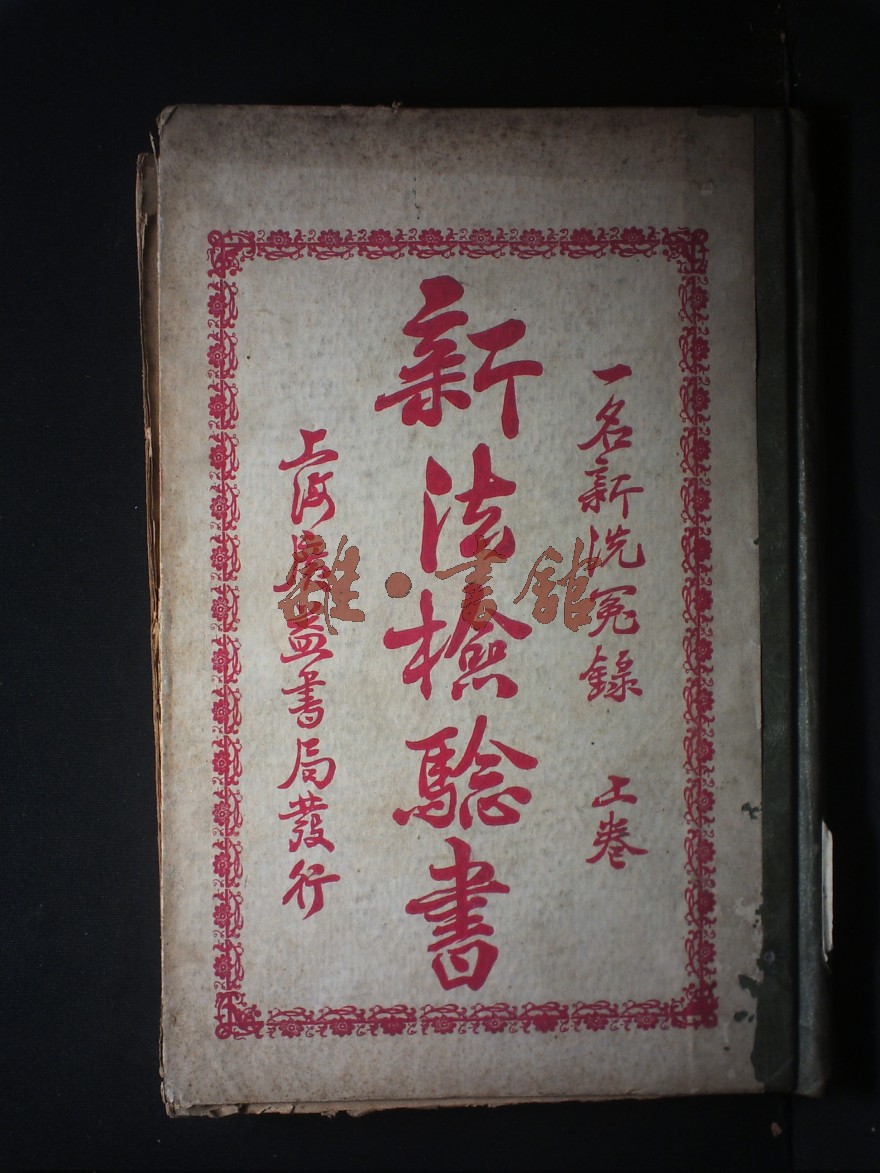 一名新洗冤錄 上卷
新法檢驗書
上海廣益書局發行
雜·書館